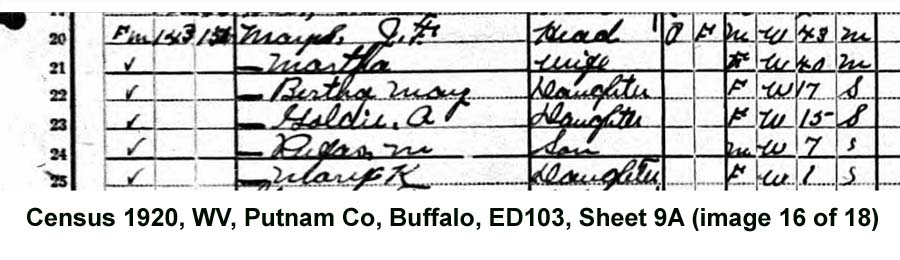 20 Fm 143 Head O F M W 43 M
21 ✓ — Martha Wife F W 40 M
22 ✓ — Bertha May Daughter F W 17 S
23 ✓ — Goldie, A Daughter F W 15 S
24 ✓ — Son M W 7 S
25 ✓ — Mary K Daughter F W 1 S
Census 1920, WV, Putnam Co, Buffalo, ED103, Sheet 9A (image 16 of 18)